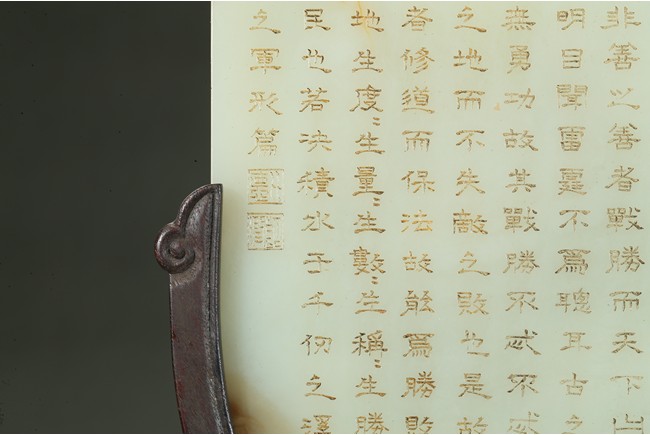 非善之善者戰勝而天下
明目聞雷霆不為聰耳古之
無勇功故其戰勝不忒不忒
之地而不失敵之敗也是故
者修道而保法故能為勝敗
地生度〻生量〻生數〻生稱〻生勝
民也若決積水于千仞之谿
之軍形篇